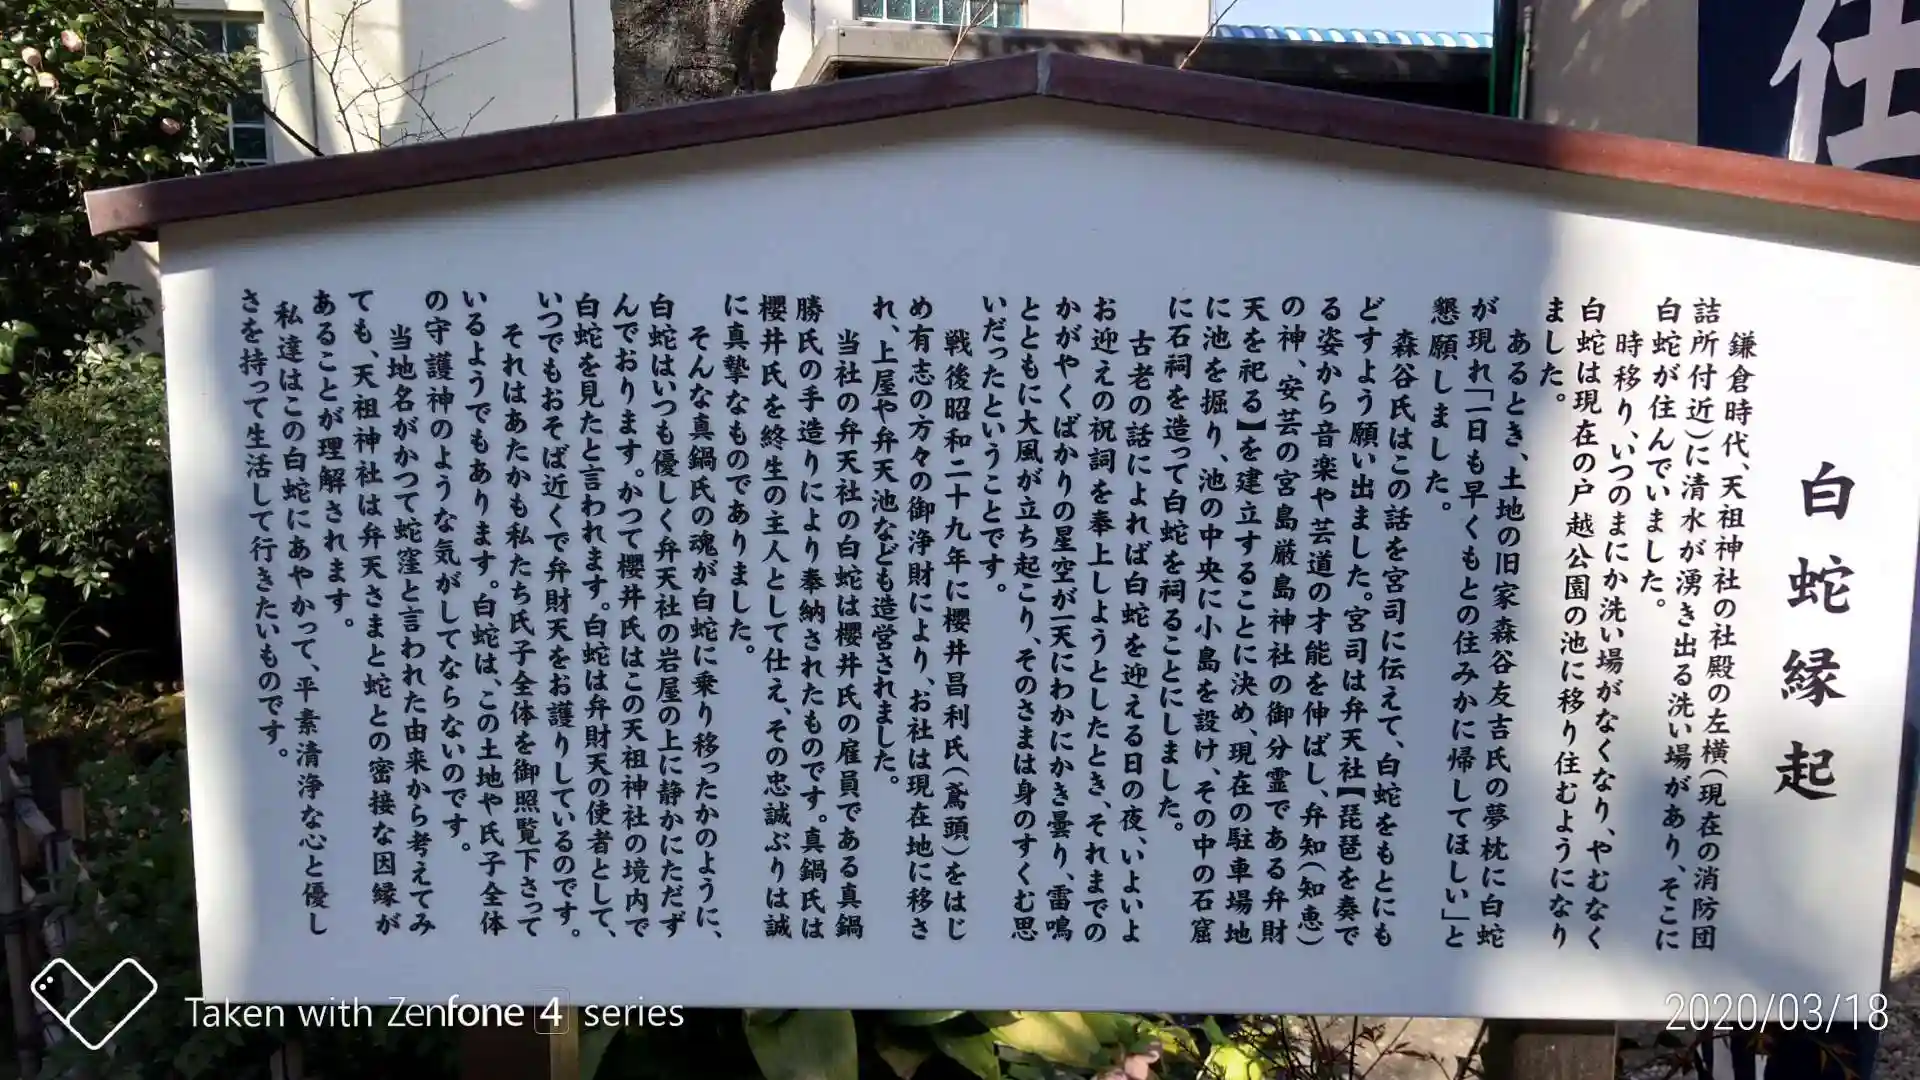 白蛇縁起
鎌倉時代、天祖神社の社殿の左横(現在の消防団
詰所付近)に清水が湧き出る洗い場があり、そこに
白蛇が住んでいました。
時移り、いつのまにか洗い場がなくなり、やむなく
白蛇は現在の戸越公園の池に移り住むようになり
ました。
あるとき、土地の旧家森谷友吉氏の夢枕に白蛇
が現れ「一日も早くもとの住みかに帰してほしい」と
懇願しました。
森谷氏はこの話を宮司に伝えて、白蛇をもとにも
どすよう願い出ました。宮司は弁天社【琵琶を奏で
る姿から音楽や芸道の才能を伸ばし、弁知(知恵)
の神、安芸の宮島厳島神社の御分霊である弁財
天を祀る】を建立することに決め、現在の駐車場地
に池を掘り、池の中央に小島を設け、その中の石窟
に石祠を造って白蛇を祠ることにしました。
古老の話によれば白蛇を迎える日の夜、いよいよ
お迎えの祝詞を奉上しようとしたとき、それまでの
かがやくばかりの星空が一天にわかにかき曇り、雷鳴
とともに大風が立ち起こり、そのさまは身のすくむ思
いだったということです。
戦後昭和二十九年に櫻井昌利氏(鳶頭)をはじ
め有志の方々の御浄財により、お社は現在地に移さ
れ、上屋や弁天池なども造営されました。
当社の弁天社の白蛇は櫻井氏の雇員である真鍋
勝氏の手造りにより奉納されたものです。真鍋氏は
櫻井氏を終生の主人として仕え、その忠誠ぶりは誠
に真摯なものでありました。
そんな真鍋氏の魂が白蛇に乗り移ったかのように、
白蛇はいつも優しく弁天社の岩屋の上に静かにただず
んでおります。かつて櫻井氏はこの天祖神社の境内で
白蛇を見たと言われます。白蛇は弁財天の使者として、
いつでもおそば近くで弁財天をお護りしているのです。
それはあたかも私たち氏子全体を御照覧下さって
いるようでもあります。白蛇は、この土地や氏子全体
の守護神のような気がしてならないのです。
当地名がかつて蛇窪と言われた由来から考えてみ
ても、天祖神社は弁天さまと蛇との密接な因縁が
あることが理解されます。
私達はこの白蛇にあやかって、平素清浄な心と優し
さを持って生活して行きたいものです。
Taken with Zenfone 4 series
2020/03/18